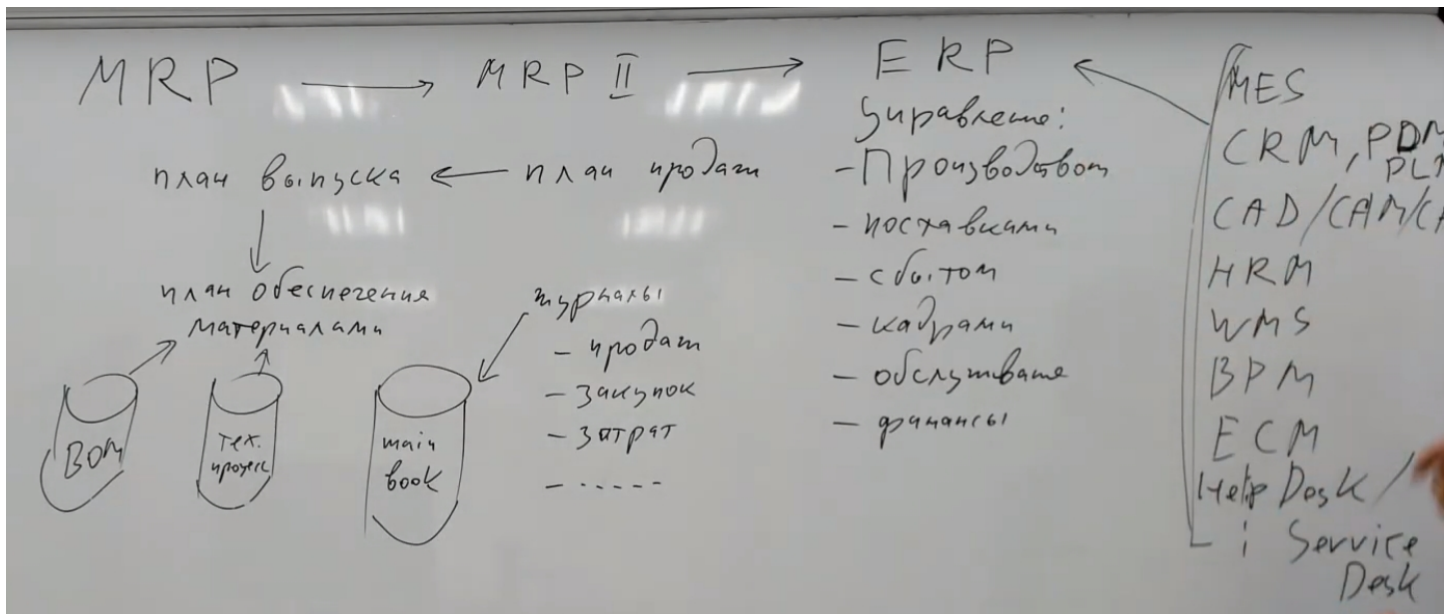 MRP → MRP II → ERP ←
план выпуска ← план продаж
план обеспечения
материалами
BOM
тех.
процесс
main
book
журналы
- продаж
- закупок
- затрат
- .....
Управление:
- Производством
- поставками
- сбытом
- кадрами
- обслуживание
- финансы
MES
CRM, PDM
PLM
CAD/CAM/CA
HRM
WMS
BPM
ECM
Help Desk /
i Service
Desk